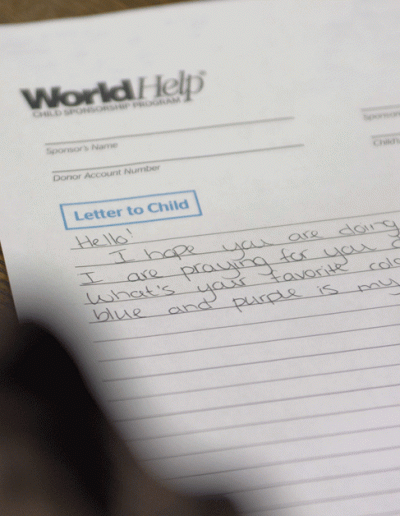 World Help
CHILD SPONSORSHIP PROGRAM
Sponsor's Name
Sponsor
Donor Account Number
Child'
Letter to Child
Hello!
I hope you are doing
I are praying for you
What's your favorite colo
blue and purple is my